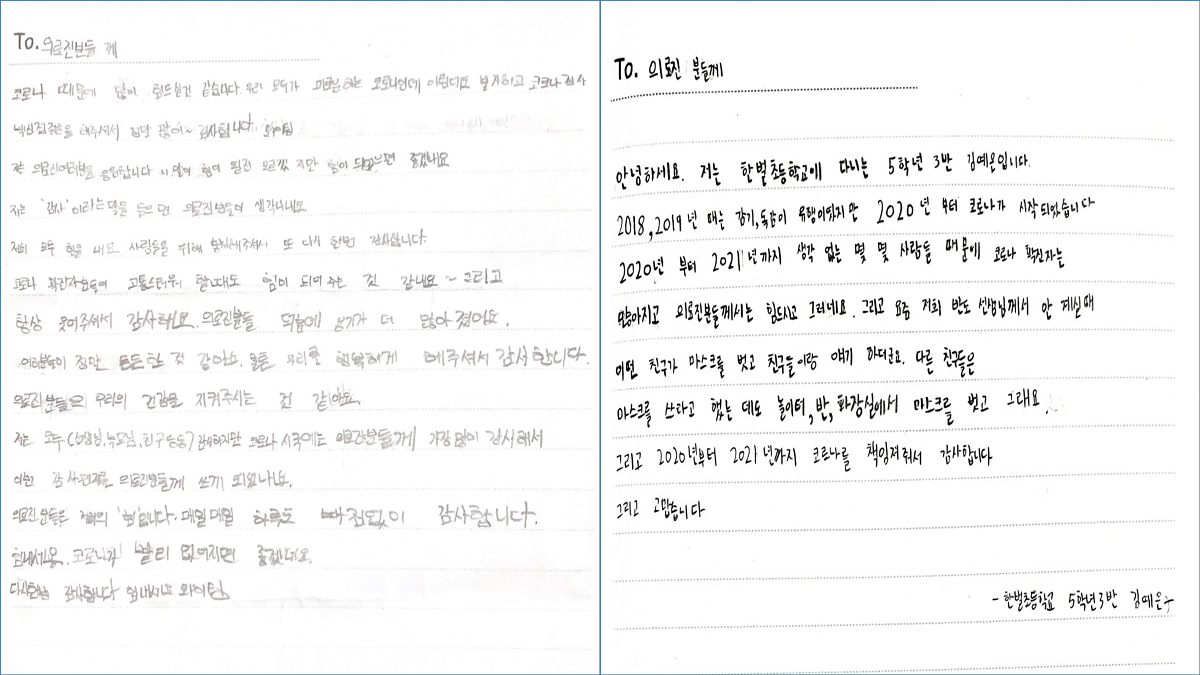 To. 의료진분들 께
코로나 때문에 많이 힘드실것 같습니다. 우리 모두가 괴로워하는 코로나인데 코로나 검사
백신접종을 해주셔서 정말 많이~ 감사합니다. 화이팅
저는 의료진여러분을 응원합니다 힘이 되었으면 좋겠네요
저는 '감사'이라는 말을 들으면 의료진분들이 생각나네요.
저희 모두 힘을 내요. 사람들을 위해 해주셔서 또 다시 한번 감사합니다.
코로나 확진자분들이 고통스러워 할때도 힘이 되어 주는 것 같네요~ 그리고
항상 웃어주셔서 감사해요. 의료진분들 덕분에 용기가 더 많아 졌어요.
여러분들이 정말 든든한 것 같아요. 우리를 행복하게 해주셔서 감사합니다.
의료진분들은 우리의 건강을 지켜주시는 것 같아요.
저는 모두 (선생님, 부모님, 친구 등등) 감사하지만 코로나 시국에는 의료진분들께 가장 많이 감사해서
이런 감사편지를 의료진분들께 쓰게 되었나요.
의료진분들은 저희의 '힘'입니다. 매일매일 하루도 빠짐없이 감사합니다.
힘내세요. 코로나가 빨리 없어지면 좋겠네요.
다시한번 감사합니다 힘내시고 화이팅
To. 의료진 분들께
안녕하세요. 저는 한벌초등학교에 다니는 5학년 3반 김예은입니다.
2018, 2019년 때는 감기, 독감이 유행이었지만 2020년 부터 코로나가 시작 되었습니다
2020년 부터 2021년까지 생각 없는 몇 몇 사람들 때문에 코로나 확진자는
많아지고 의료진분들께서는 힘드시고 그러네요. 그리고 요즘 저희 반도 선생님께서 안 계실때
어떤 친구가 마스크를 벗고 친구들이랑 얘기 하더군요. 다른 친구들은
마스크를 쓰라고 했는 데도 놀이터, 반, 화장실에서 마스크를 벗고 그래요.
그리고 2020년부터 2021년까지 코로나를 책임져줘서 감사합니다
그리고 고맙습니다
- 한벌초등학교 5학년 3반 김예은